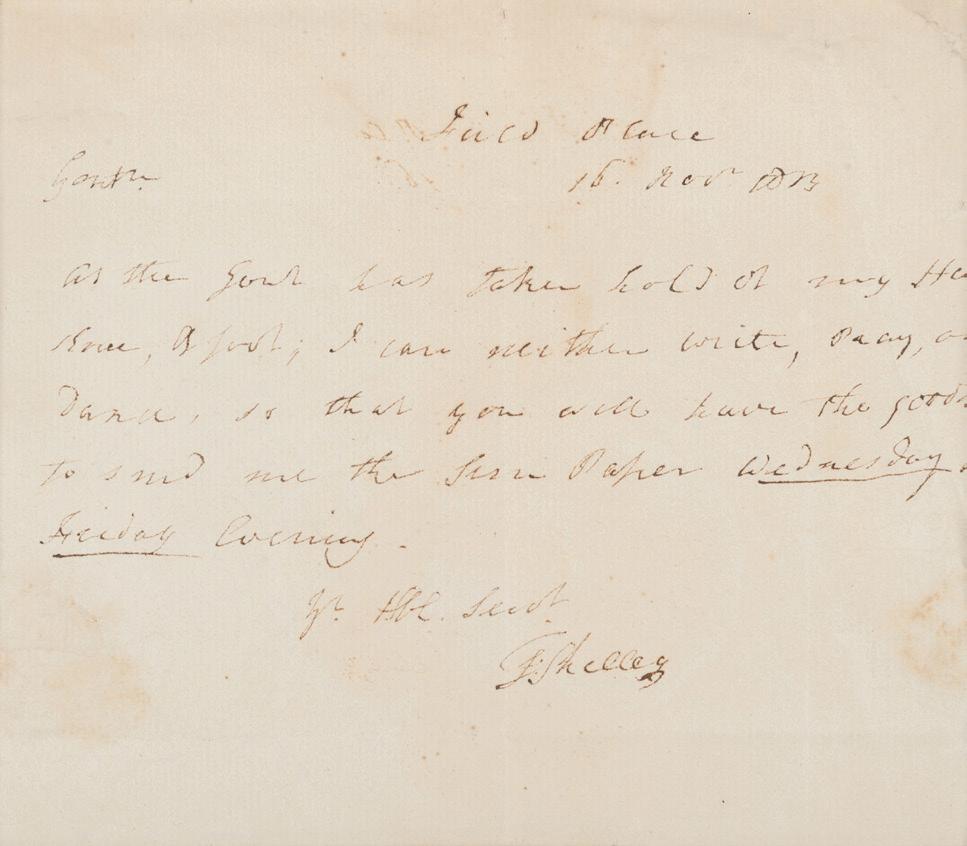 Field Place
Gentn.
16. Novr. 1813
As the Gout has taken hold of my
Knee, & foot; I can neither write, Pray, or
Dance, so that you will have the
to send me the Sun Paper Wednesday
Friday Evening.
Yr. Hbl. Servt.
T. Shelley